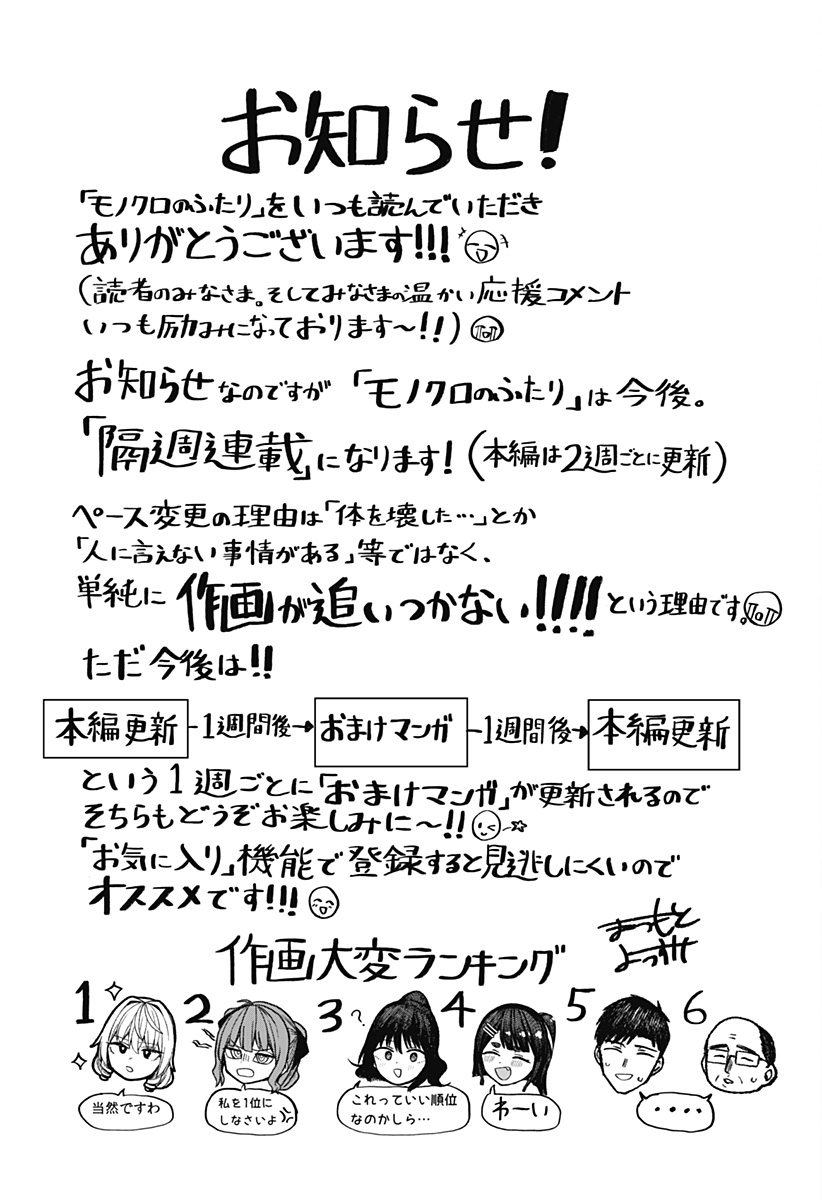 お知らせ!
「モノクロのふたり」をいつも読んでいただき
ありがとうございます!!!
(読者のみなさま。そしてみなさまの温かい応援コメント
いつも励みになっております〜!!)
お知らせなのですが「モノクロのふたり」は今後。
「隔週連載」になります!(本編は2週ごとに更新)
ペース変更の理由は「体を壊した…」とか
「人に言えない事情がある」等ではなく、
単純に作画が追いつかない!!!!という理由です。
ただ今後は!!
本編更新 1週間後→ おまけマンガ 1週間後→ 本編更新
という1週ごとに「おまけマンガ」が更新されるので
そちらもどうぞお楽しみに〜!!
「お気に入り」機能で登録すると見逃しにくいので
オススメです!!!
まつもと
よつみ
作画大変ランキング
1 2 3 ? 4 5 6
当然ですわ
私を1位に
しなさいよ
これっていい順位
なのかしら…
わーい
・・・・